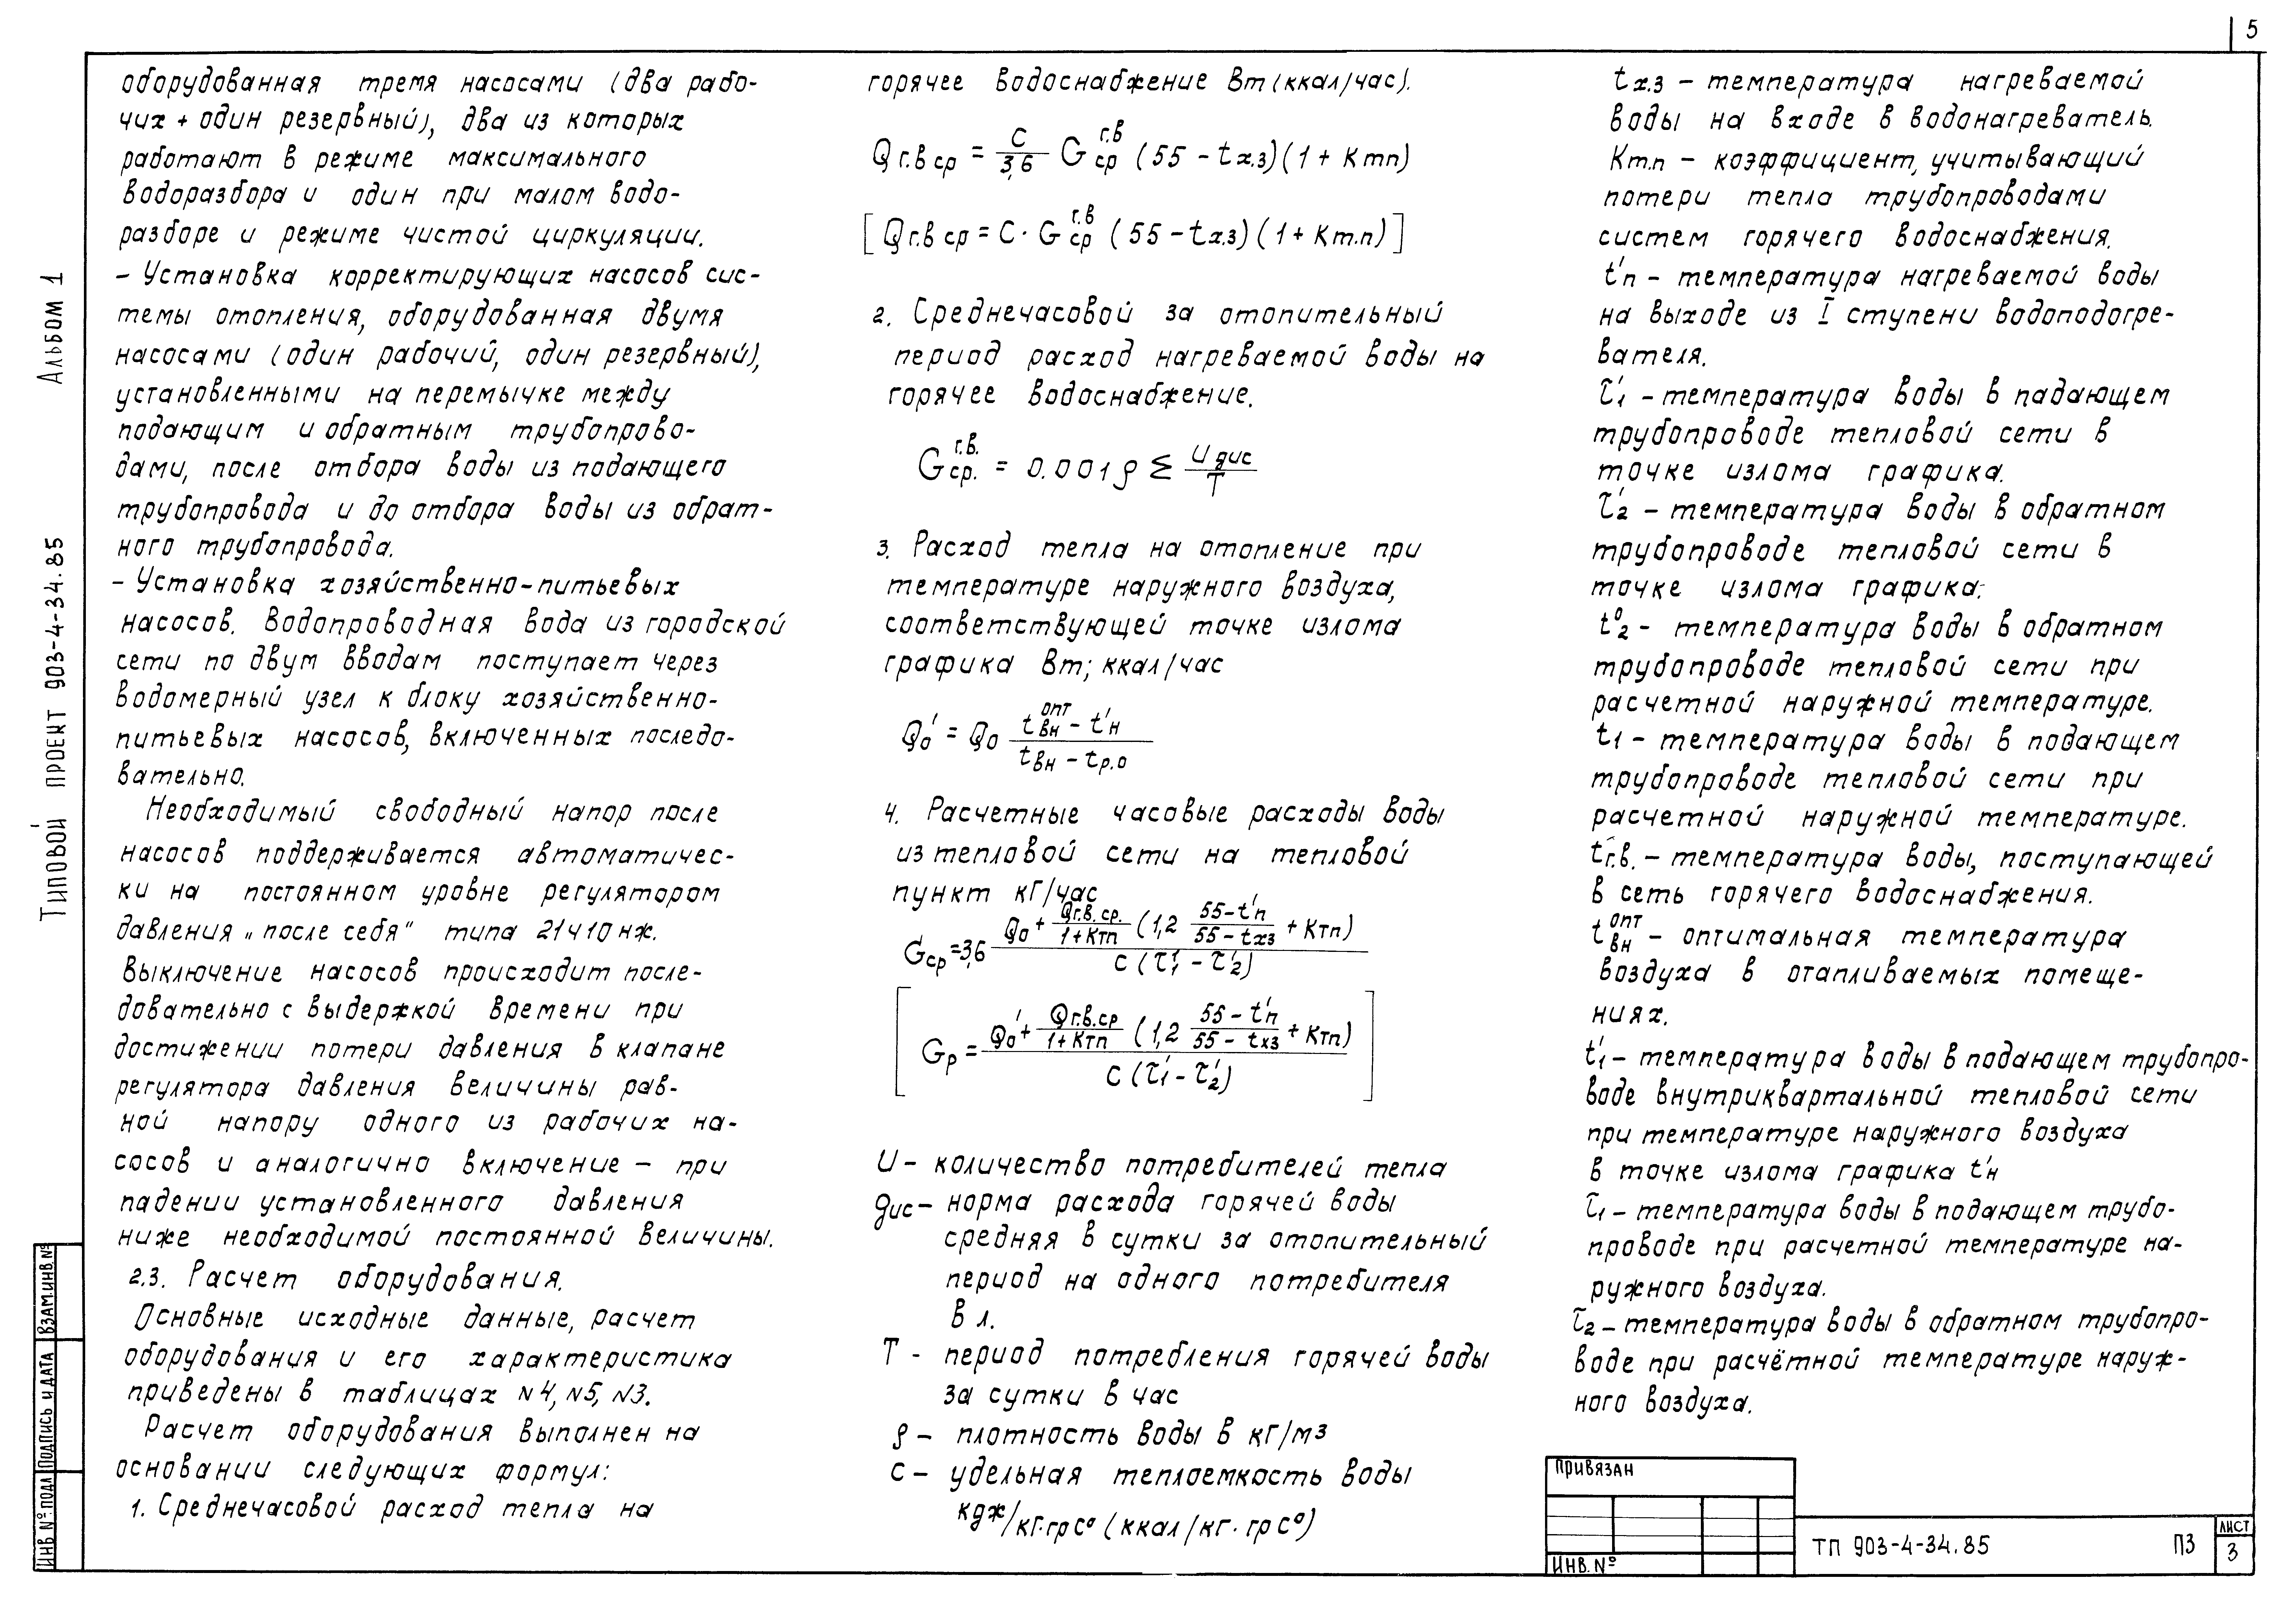 5
оборудованная тремя насосами (два рабо-
чих + один резервный), два из которых
работают в режиме максимального
водоразбора и один при малом водо-
разборе и режиме чистой циркуляции.
- Установка корректирующих насосов сис-
темы отопления, оборудованная двумя
насосами (один рабочий, один резервный),
установленными на перемычке между
подающим и обратным трубопрово-
дами, после отбора воды из подающего
трубопровода и до отбора воды из обрат-
ного трубопровода.
- Установка хозяйственно-питьевых
насосов. Водопроводная вода из городской
сети по двум вводам поступает через
водомерный узел к блоку хозяйственно-
питьевых насосов, включенных последо-
вательно.
Необходимый свободный напор после
насосов поддерживается автоматичес-
ки на постоянном уровне регулятором
давления „после себя" типа 21ч10нж.
Выключение насосов происходит после-
довательно с выдержкой времени при
достижении потери давления в клапане
регулятора давления величины рав-
ной напору одного из рабочих на-
сосов и аналогично включение - при
падении установленного давления
ниже необходимой постоянной величины.
2.3. Расчет оборудования.
Основные исходные данные, расчет
оборудования и его характеристика
приведены в таблицах N4, N5, N3.
Расчет оборудования выполнен на
основании следующих формул:
1. Среднечасовой расход тепла на
горячее водоснабжение Вт (ккал/час).
Qг.в ср = С/3,6 G г.в ср (55 - tх.з)(1 + Kтп)
[Qг.в ср = С · G г.в ср (55 - tх.з)(1 + Kт.п)]
2. Среднечасовой за отопительный
период расход нагреваемой воды на
горячее водоснабжение.
G г.в. ср. = 0.001 ρ Σ U gис / T
3. Расход тепла на отопление при
температуре наружного воздуха,
соответствующей точке излома
графика Вт; ккал/час
Qо' = Qо (t опт вн - t'н) / (tвн - tр.о)
4. Расчетные часовые расходы воды
из тепловой сети на тепловой
пункт кГ/час
Gср = 3,6 (Qо' + Qг.в.ср. / (1+Kтп) (1,2 (55-t'п) / (55-tхз) + Kтп)) / (с (τ'1 - τ'2))
[Gр = (Qо' + Qг.в.ср / (1+Kтп) (1,2 (55-t'п) / (55-tхз) + Kтп)) / (с (τ'1 - τ'2))]
U - количество потребителей тепла
gис - норма расхода горячей воды
средняя в сутки за отопительный
период на одного потребителя
в л.
T - период потребления горячей воды
за сутки в час
ρ - плотность воды в кГ/м3
с - удельная теплоемкость воды
кдж/кг·гр с° (ккал/кг·гр с°)
tх.з - температура нагреваемой
воды на входе в водонагреватель.
Kт.п - коэффициент, учитывающий
потери тепла трубопроводами
систем горячего водоснабжения.
t'п - температура нагреваемой воды
на выходе из I ступени водоподогре-
вателя.
τ'1 - температура воды в падающем
трубопроводе тепловой сети в
точке излома графика.
τ'2 - температура воды в обратном
трубопроводе тепловой сети в
точке излома графика;
t°2 - температура воды в обратном
трубопроводе тепловой сети при
расчетной наружной температуре.
t1 - температура воды в подающем
трубопроводе тепловой сети при
расчетной наружной температуре.
tг.в. - температура воды, поступающей
в сеть горячего водоснабжения.
t опт вн - оптимальная температура
воздуха в отапливаемых помеще-
ниях.
t'1 - температура воды в подающем трубопро-
воде внутриквартальной тепловой сети
при температуре наружного воздуха
в точке излома графика t'н
τ1 - температура воды в подающем трубо-
проводе при расчетной температуре на-
ружного воздуха.
τ2 - температура воды в обратном трубопро-
воде при расчётной температуре наруж-
ного воздуха.
Альбом 1
Типовой проект 903-4-34.85
Взам.инв.№
Подпись и дата
Инв №подл
Привязан
Инв. №
ТП 903-4-34.85
ПЗ
Лист
3